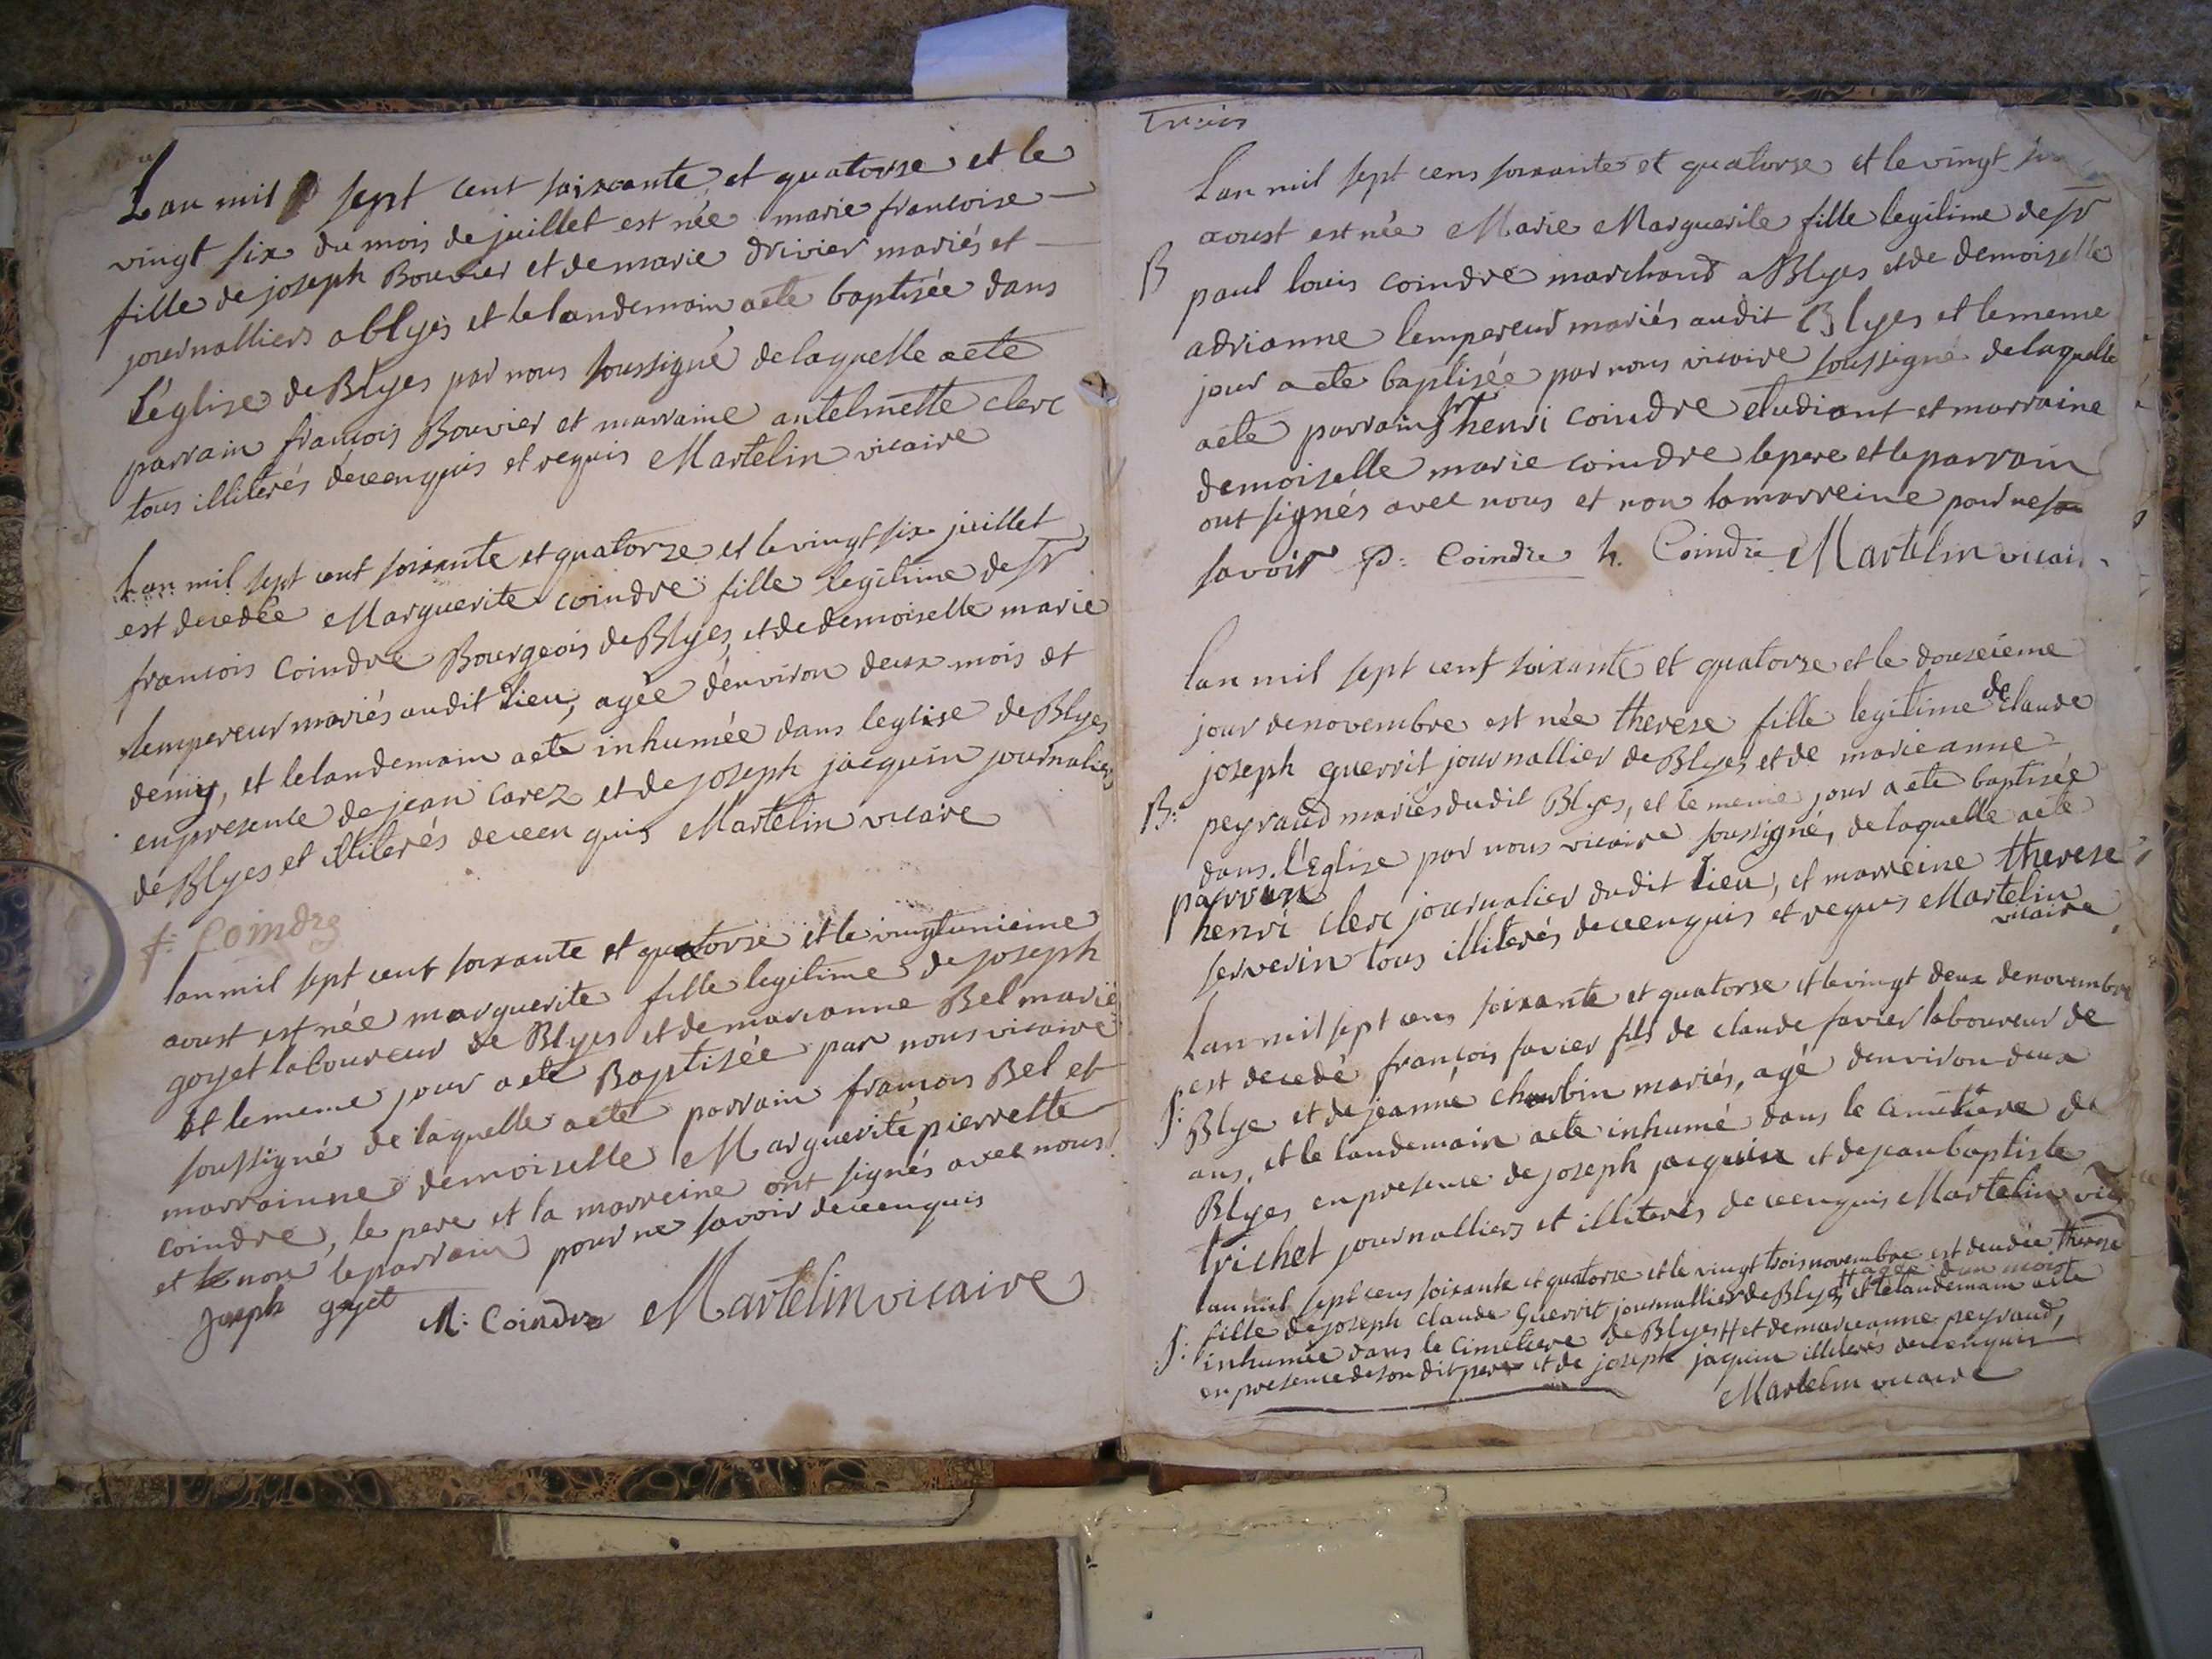 L'an mil sept cent soixante et quatorse et le
vingt six du mois de juillet est née marie francoise
fille de joseph Bouvier et de marie drivier mariés et
journalliers a blyes et le landemain a ete baptisée dans
L'église de Blyes par nous soussigné de laquelle a ete
parrain françois Bouvier et marraine antelmette clerc
tous illiterés de ce enquis et requis Martelin vicaire
Lan mil sept cent soixante et quatorze et le vingt six juillet
est decedée Marguerite coindre fille legitime de sr
francois Coindre Bourgeois de Blyes, et de demoiselle marie
lempereur mariés audit Lieu, agée d'environ deux mois et
demy, et le landemain a ete inhumée dans leglise de Blyes
en presence de jean carez et de joseph jacquin journaliers
de Blyes et illiterés de ce en quis Martelin vicaire
f: Coindre
lan mil sept cent soixante et quatorse et le vingtunieme
aoust est née marguerite fille legitime de joseph
goyet laboureur de Blyes et de marianne Bel mariés
et le meme jour a ete Baptisée par nous vicaire
soussigné de laquelle a ete parrain francois Bel et
marrainne demoiselle Marguerite pierrette
coindre, le pere et la marreine ont signés avec nous
et non le parrain pour ne savoir de ce enquis
Joseph goyet M: Coindre Martelin vicaire
Lan mil sept cens soixante et quatorse et le vingt
aoust est née Marie Marguerite fille legitime de sr
B
paul louis coindre marchand a Blyes et de demoiselle
adrianne lempereur mariés audit Blyes et le meme
jour a ete baptisée par nous vicaire soussigné de laquelle
a ete parrain sr henri coindre etudiant et marraine
demoiselle marie coindre le pere et le parrain
ont signés avec nous et non la marreine pour ne
savoir P: Coindre h. Coindre Martelin vicai
lan mil sept cent soixante et quatorze et le douseieme
jour de novembre est née therese fille legitime de claude
joseph guerrit journallier de Blyes et de marie anne
B: peyraud mariés dudit Blyes, et le meme jour a ete baptisée
dans l'Eglise par nous vicaire soussigné, de laquelle a ete
parrain
henri clerc journalier dudit Lieu, et marreine therese
serverin tous illiterés de ce enquis et requis Martelin
vicaire
Lan mil sept cens soixante et quatorse et le vingt deux de novembre
est decedé françois favier fils de claude favier laboureur de
S: Blye et de jeanne charbin mariés, agé d'environ deux
ans, et le landemain a ete inhumé dans le cimetiere de
Blyes en presence de joseph jacquin et de jean baptiste
trichet journalliers et illiterés de ce enquis Martelin
lan mil sept cens soixante et quatorse et le vingt trois novembre est decedée therese
H agée d'un mois
fille de joseph claude Guerrit journallier de Blyes H et le landemain a ete
S: inhumée dans le cimetiere de Blyes H et de marieanne peyraud,
en presence de son dit pere et de joseph jaquin illiterés de ce enquis
Martelin vicaire